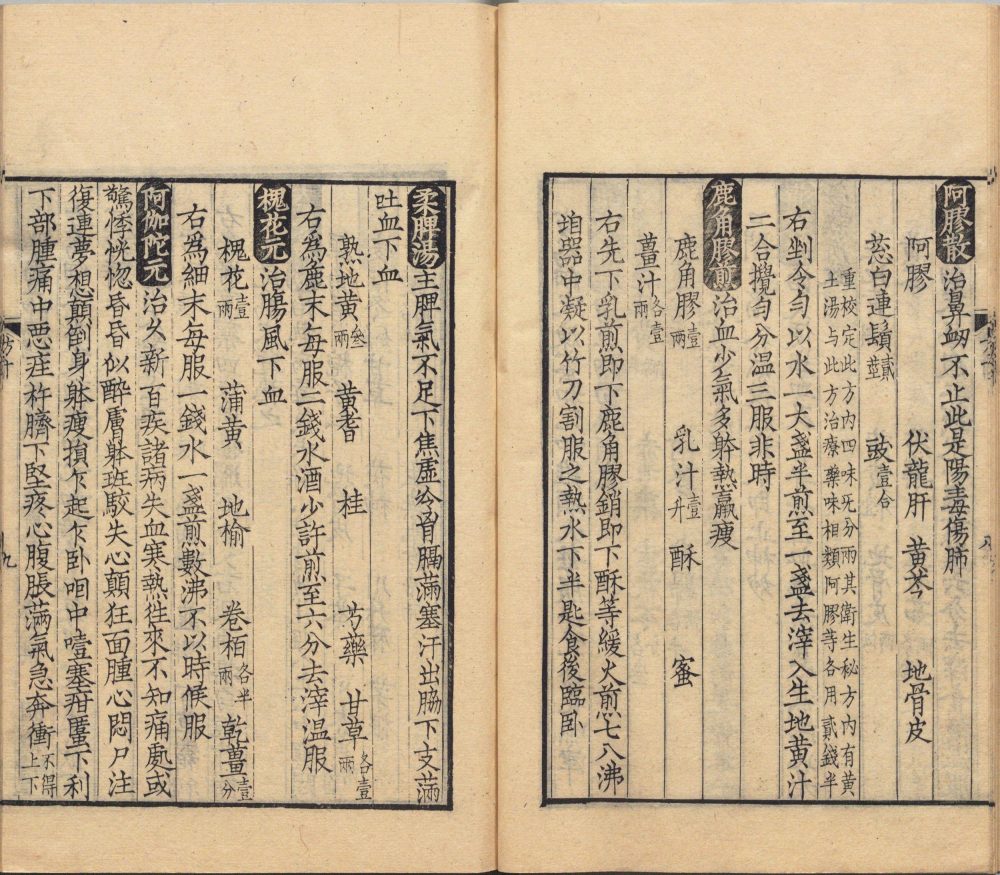 阿膠散 治鼻衂不止此是陽毒傷肺
阿膠 伏龍肝 黄芩 地骨皮
葱白連鬚貳莖 豉壹合
重校定此方内四味旡分兩其衛生秘方内有黄
土湯与此方治療藥味相類阿膠等各用貳錢半
右剉令勻以水一大盞半煎至一盞去滓入生地黄汁
二合攪勻分温三服非時
鹿角膠煎 治血少氣多躰熱羸瘦
鹿角膠壹兩 乳汁壹升 酥 蜜
薑汁各壹兩
右先下乳煎即下鹿角膠銷即下酥等緩火煎七八沸
堈器中凝以竹刀割服之熱水下半匙食後臨卧
柔脾湯 主脾氣不足下焦虚冷胷膈滿塞汗出脇下支滿
吐血下血
熟地黄叁兩 黄耆 桂 芍藥 甘草各壹兩
右為麄末每服二錢水酒少許煎至六分去滓温服
槐花元 治腸風下血
槐花壹兩 蒲黄 地榆 卷栢各半兩 乾薑壹分
右為細末每服一錢水一盞煎數沸不以時候服
阿伽陀元 治久新百疾諸病失血寒熱徃來不知痛處或
驚悸恍惚昏昏似醉膚躰班駮失心顛狂面腫心悶尸注
復連夢想顛倒身躰瘦損乍起乍卧咽中噎塞疳䘌下利
下部腫痛中悪疰忤臍下堅疼心腹脹滿氣急奔衝不得上下
九